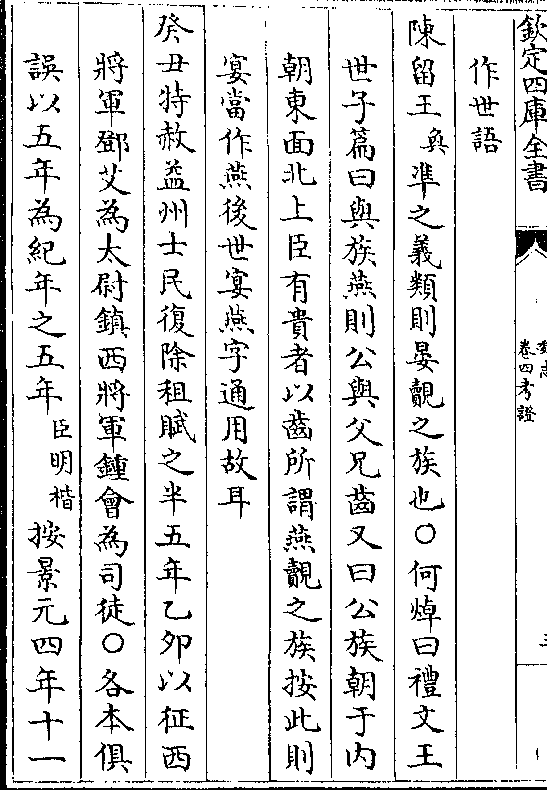 欽定四庫全書
卷四考證
作世語
陳留王奐準之義類則晏覿之族也○何焯曰禮文王
世子篇曰與族燕則公與父兄齒又曰公族朝于内
朝東面北上臣有貴者以齒所謂燕覿之族按此則
宴當作燕後世宴燕字通用故耳
癸丑特赦益州士民復除租賦之半五年乙卯以征西
將軍鄧艾為太尉鎮西將軍鍾會為司徒○各本俱
誤以五年為紀年之五年臣明楷按景元四年十一